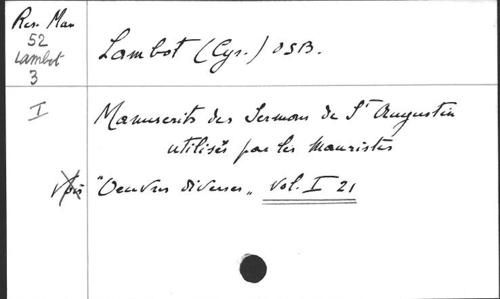 Res. Man
52
Lambot
3
Lambot (Cyr.) OSB.
I
Manuscrits des Sermons de St Augustin
utilisés par les Mauristes
voir "Oeuvres diverses" vol. I 21